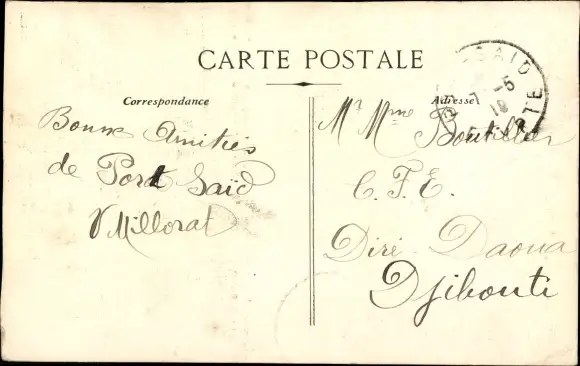 CARTE POSTALE
Correspondance
Bonnes Amitiés
de Port Saïd
V Millorat
Adresse
Mr Mme Boutillier
C. F. E.
Diré-Daoua
Djibouti
SAID
7 -5